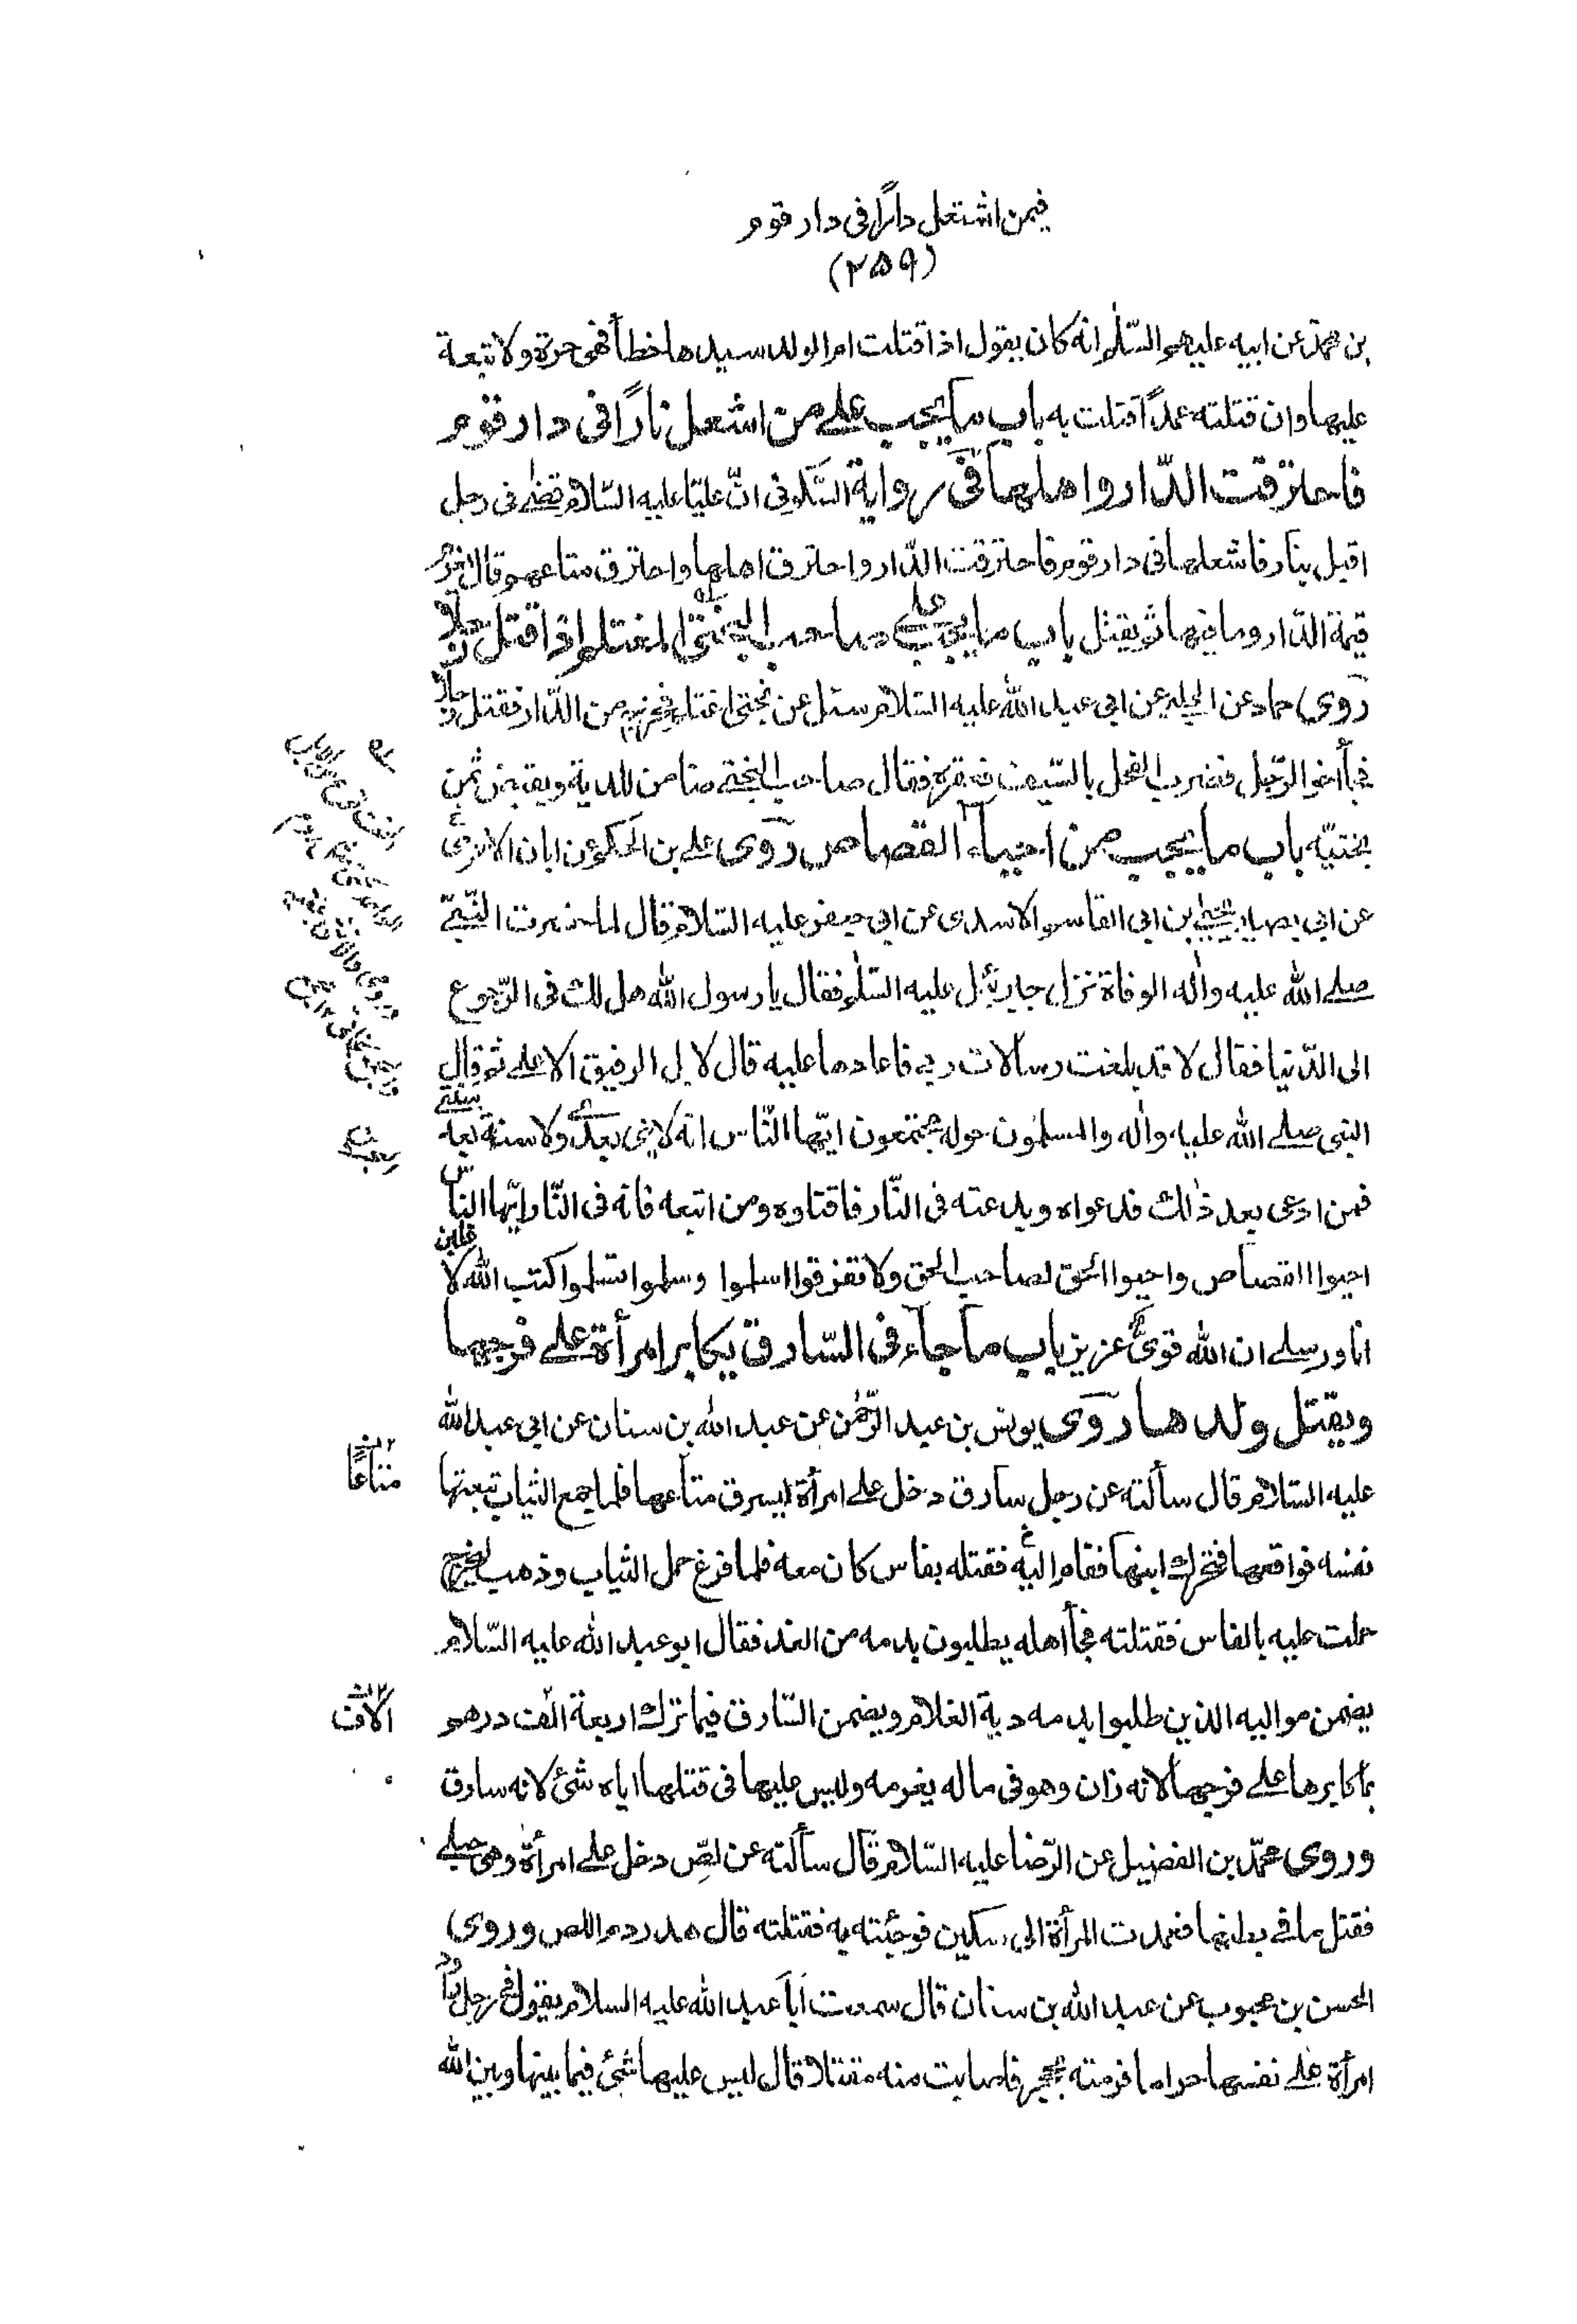 فيمن اشتعل دارًا فى دار قوم
(٢٥٩)
بن محمّد عن ابيه عليهم السّلم انه كان يقول اذا قتلت ام الولد سيدها خطأ فهى حرة ولا تبعة
عليها وان قتلته عمدًا قتلت به باب ما يجب على من اشعل نارًا فى دار قوم
فاحترقت الدّار واهلها فى رواية السّكونى انّ عليّا عليه السّلام قضى فى رجل
اقبل بنار فاشعلها فى دار قوم فاحترقت الدّار واحترق اهلها واحترق متاعهم قال يغرم
قيمة الدّار وما فيها ثم يقتل باب ما يجب على صاحب البختى المغتلم اذا قتل رجلا
روى حماد عن الحلبى عن ابى عبد الله عليه السّلام سئل عن بختى اغتلم فخرج من الدّار فقتل رجلا
فجأ اخو الرّجل فضرب الفحل بالسّيف فعقره فقال صاحب البختى ضامن للدية ويقبض ثمن
بختيّه باب ما يجب من احياء القصاص روى على بن الحكم عن ابان الاحمرى
عن ابى بصير يحيى بن ابى القاسم الاسدى عن ابى جعفر عليه السّلام قال لما حضرت النّبىّ
صلى الله عليه واله الوفاة نزل جبرئيل عليه السّلم فقال يا رسول الله هل لك فى الرّجوع
الى الدّنيا فقال لا قد بلغت رسالات ربى فاعادها عليه قال لا بل الرفيق الاعلى ثم قال
النبى صلى الله عليه واله والمسلمون حوله مجتمعون ايّها النّاس انه لا نبى بعدى ولا سنة بعد سنتى
فمن ادعى بعد ذلك فدعواه وبدعته فى النّار فاقتلوه ومن اتبعه فانه فى النّار ايّها النّاس
احيوا القصاص واحيوا الحق لصاحب الحق ولا تفرقوا اسلموا وسلموا تسلموا كتب الله لاغلبن
انا ورسلى ان الله قوىّ عزيز باب ما جآء فى السّارق يكابر امرأة على فرجها
ويقتل ولدها روى يونس بن عبد الرّحمن عن عبد الله بن سنان عن ابى عبد الله
عليه السّلام قال سألته عن رجل سارق دخل على امرأة ليسرق متاعها فلما جمع الثياب تبعتها
متاعًا
نفسه فواقعها فتحرك ابنها فقام اليه فقتله بفاس كان معه فلما فرغ حمل الثياب وذهب ليخرج
حملت عليه بالفاس فقتلته فجأ اهله يطلبون بدمه من الغد فقال ابو عبد الله عليه السّلام
يضمن مواليه الذين طلبوا بدمه دية الغلام ويضمن السّارق فيما ترك اربعة الف درهم
الاف
بما كابرها على فرجها لانه زان وهو فى ماله يغرمه وليس عليها فى قتلها اياه شئ لانه سارق
وروى محمّد بن الفضيل عن الرّضا عليه السّلام قال سألته عن لصّ دخل على امرأة وهى حبلى
فقتل ما فى بطنها فعمدت المرأة الى سكين فوجئته به فقتلته قال هدر دم اللص وروى
الحسن بن محبوب عن عبد الله بن سنان قال سمعت ابا عبد الله عليه السلام يقول فى رجل راود
امرأة على نفسها حراما فرمته بحجر فاصابت منه مقتلا قال ليس عليها شئ فيما بينها وبين الله